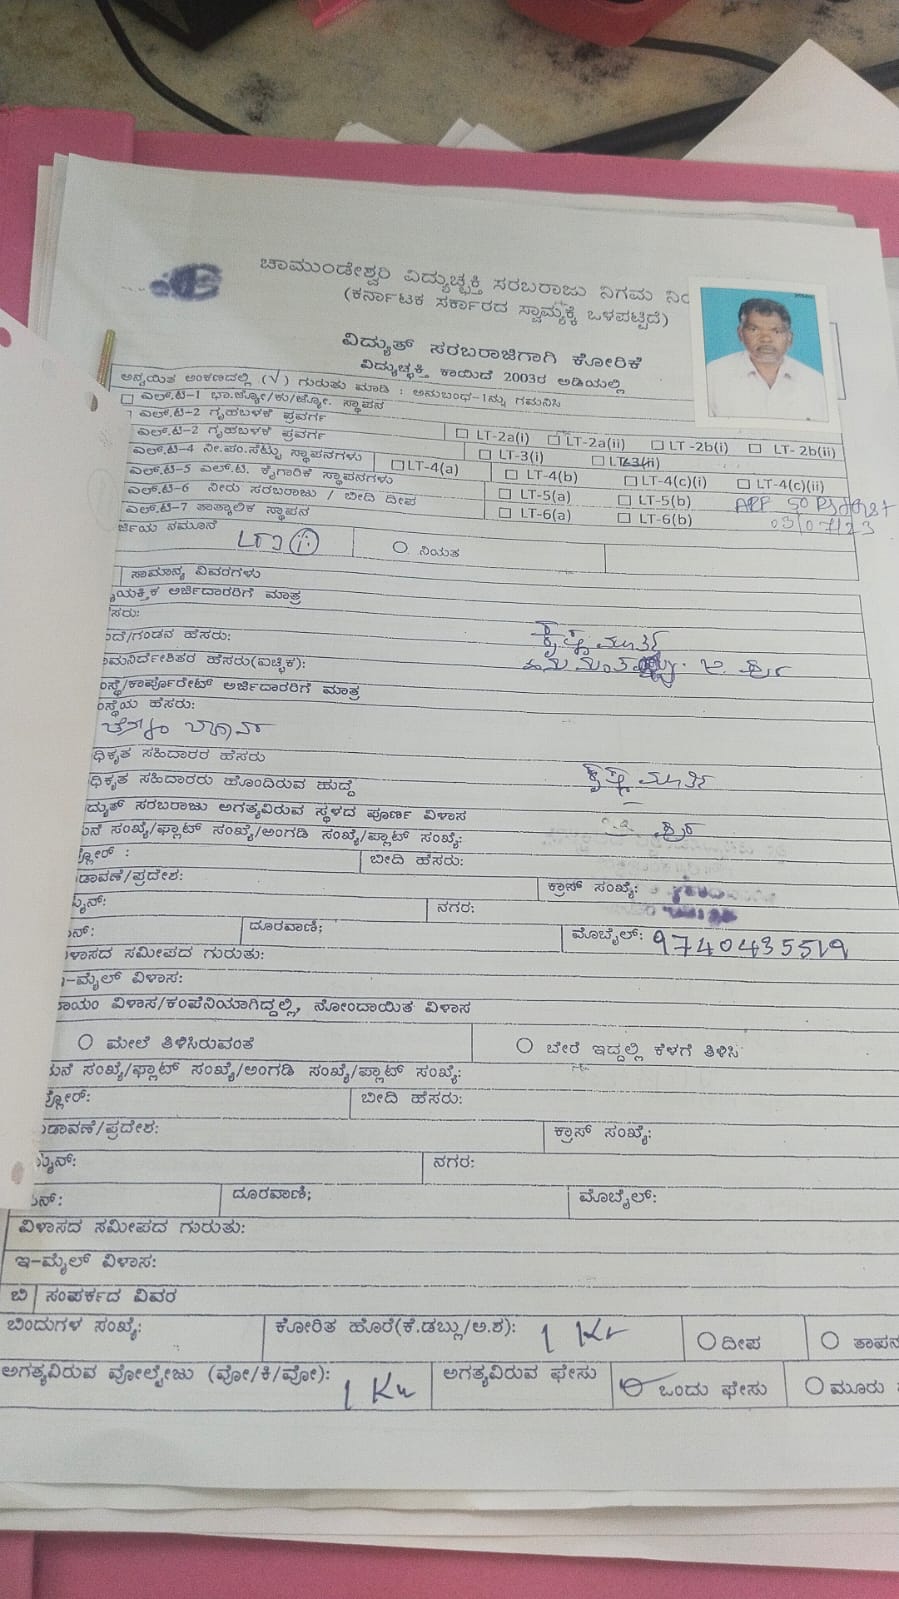 ಚಾಮುಂಡೇಶ್ವರಿ ವಿದ್ಯುಚ್ಛಕ್ತಿ ಸರಬರಾಜು ನಿಗಮ ನಿಯ
(ಕರ್ನಾಟಕ ಸರ್ಕಾರದ ಸ್ವಾಮ್ಯಕ್ಕೆ ಒಳಪಟ್ಟಿದೆ)
ವಿದ್ಯುತ್ ಸರಬರಾಜಿಗಾಗಿ ಕೋರಿಕೆ
ವಿದ್ಯುಚ್ಛಕ್ತಿ ಕಾಯಿದೆ 2003ರ ಅಡಿಯಲ್ಲಿ
ಅನ್ವಯಿತ ಅಂಕಣದಲ್ಲಿ (√) ಗುರುತು ಮಾಡಿ : ಅನುಬಂಧ-1ನ್ನು ಗಮನಿಸಿ
ಎಲ್.ಟಿ-1 ಭಾ.ಜ್ಯೋ/ಕು/ಜ್ಯೋ. ಸ್ಥಾಪನ
ಎಲ್.ಟಿ-2 ಗೃಹಬಳಕೆ ಪ್ರವರ್ಗ
ಎಲ್.ಟಿ-2 ಗೃಹಬಳಕೆ ಪ್ರವರ್ಗ LT-2a(i) LT-2a(ii) LT -2b(i) LT- 2b(ii)
ಎಲ್.ಟಿ-4 ನೀ.ಪಂ.ಸೆಟ್ಟು ಸ್ಥಾಪನಗಳು LT-3(i)
ಎಲ್.ಟಿ-5 ಎಲ್.ಟಿ. ಕೈಗಾರಿಕೆ ಸ್ಥಾಪನಗಳು LT-4(a) LT-4(b) LT-4(c)(i) LT-4(c)(ii)
ಎಲ್.ಟಿ-6 ನೀರು ಸರಬರಾಜು / ಬೀದಿ ದೀಪ LT-5(a) LT-5(b)
ಎಲ್.ಟಿ-7 ತಾತ್ಕಾಲಿಕ ಸ್ಥಾಪನ LT-6(a) LT-6(b) 03/07/23
ರ್ಜಿಯ ನಮೂನೆ ನಿಯತ
ಸಾಮಾನ್ಯ ವಿವರಗಳು
ಯಕ್ತಿಕ ಅರ್ಜಿದಾರರಿಗೆ ಮಾತ್ರ
ಸರು:
ದೆ/ಗಂಡನ ಹೆಸರು: ಕೃಷ್ಣಮೂರ್ತಿ
ಾಮನಿರ್ದೇಶಿತರ ಹೆಸರು(ಐಚ್ಛಿಕ):
ಂಸ್ಥೆ/ಕಾರ್ಪೊರೇಟ್ ಅರ್ಜಿದಾರರಿಗೆ ಮಾತ್ರ
ಂಸ್ಥೆಯ ಹೆಸರು:
ಧಿಕೃತ ಸಹಿದಾರರ ಹೆಸರು
ಧಿಕೃತ ಸಹಿದಾರರು ಹೊಂದಿರುವ ಹುದ್ದೆ ಕೃಷ್ಣಮೂರ್ತಿ
ದ್ಯುತ್ ಸರಬರಾಜು ಅಗತ್ಯವಿರುವ ಸ್ಥಳದ ಪೂರ್ಣ ವಿಳಾಸ
ನೆ ಸಂಖ್ಯೆ/ಫ್ಲಾಟ್ ಸಂಖ್ಯೆ/ಅಂಗಡಿ ಸಂಖ್ಯೆ/ಪ್ಲಾಟ್ ಸಂಖ್ಯೆ:
ಫ್ಲೋರ್ : ಬೀದಿ ಹೆಸರು:
ಡಾವಣೆ/ಪ್ರದೇಶ: ಕ್ರಾಸ್ ಸಂಖ್ಯೆ:
ೈನ್: ನಗರ:
ನ್: ದೂರವಾಣಿ; ಮೊಬೈಲ್: 9740435519
ಳಾಸದ ಸಮೀಪದ ಗುರುತು:
-ಮೈಲ್ ವಿಳಾಸ:
ಾಯಂ ವಿಳಾಸ/ಕಂಪೆನಿಯಾಗಿದ್ದಲ್ಲಿ, ನೋಂದಾಯಿತ ವಿಳಾಸ
ಮೇಲೆ ತಿಳಿಸಿರುವಂತೆ ಬೇರೆ ಇದ್ದಲ್ಲಿ ಕೆಳಗೆ ತಿಳಿಸಿ
ನೆ ಸಂಖ್ಯೆ/ಫ್ಲಾಟ್ ಸಂಖ್ಯೆ/ಅಂಗಡಿ ಸಂಖ್ಯೆ/ಪ್ಲಾಟ್ ಸಂಖ್ಯೆ:
ಫ್ಲೋರ್: ಬೀದಿ ಹೆಸರು:
ಡಾವಣೆ/ಪ್ರದೇಶ: ಕ್ರಾಸ್ ಸಂಖ್ಯೆ:
ೈನ್: ನಗರ:
ನ್: ದೂರವಾಣಿ; ಮೊಬೈಲ್:
ವಿಳಾಸದ ಸಮೀಪದ ಗುರುತು:
ಇ-ಮೈಲ್ ವಿಳಾಸ:
ಬಿ ಸಂಪರ್ಕದ ವಿವರ
ಬಿಂದುಗಳ ಸಂಖ್ಯೆ: ಕೋರಿತ ಹೊರೆ(ಕೆ.ಡಬ್ಲ್ಯು/ಅ.ಶ): 1 ದೀಪ ತಾಪನ
ಅಗತ್ಯವಿರುವ ವೋಲ್ಟೇಜು (ವೋ/ಕಿ/ವೋ): 1 Kw ಅಗತ್ಯವಿರುವ ಫೇಸು ಒಂದು ಫೇಸು ಮೂರು